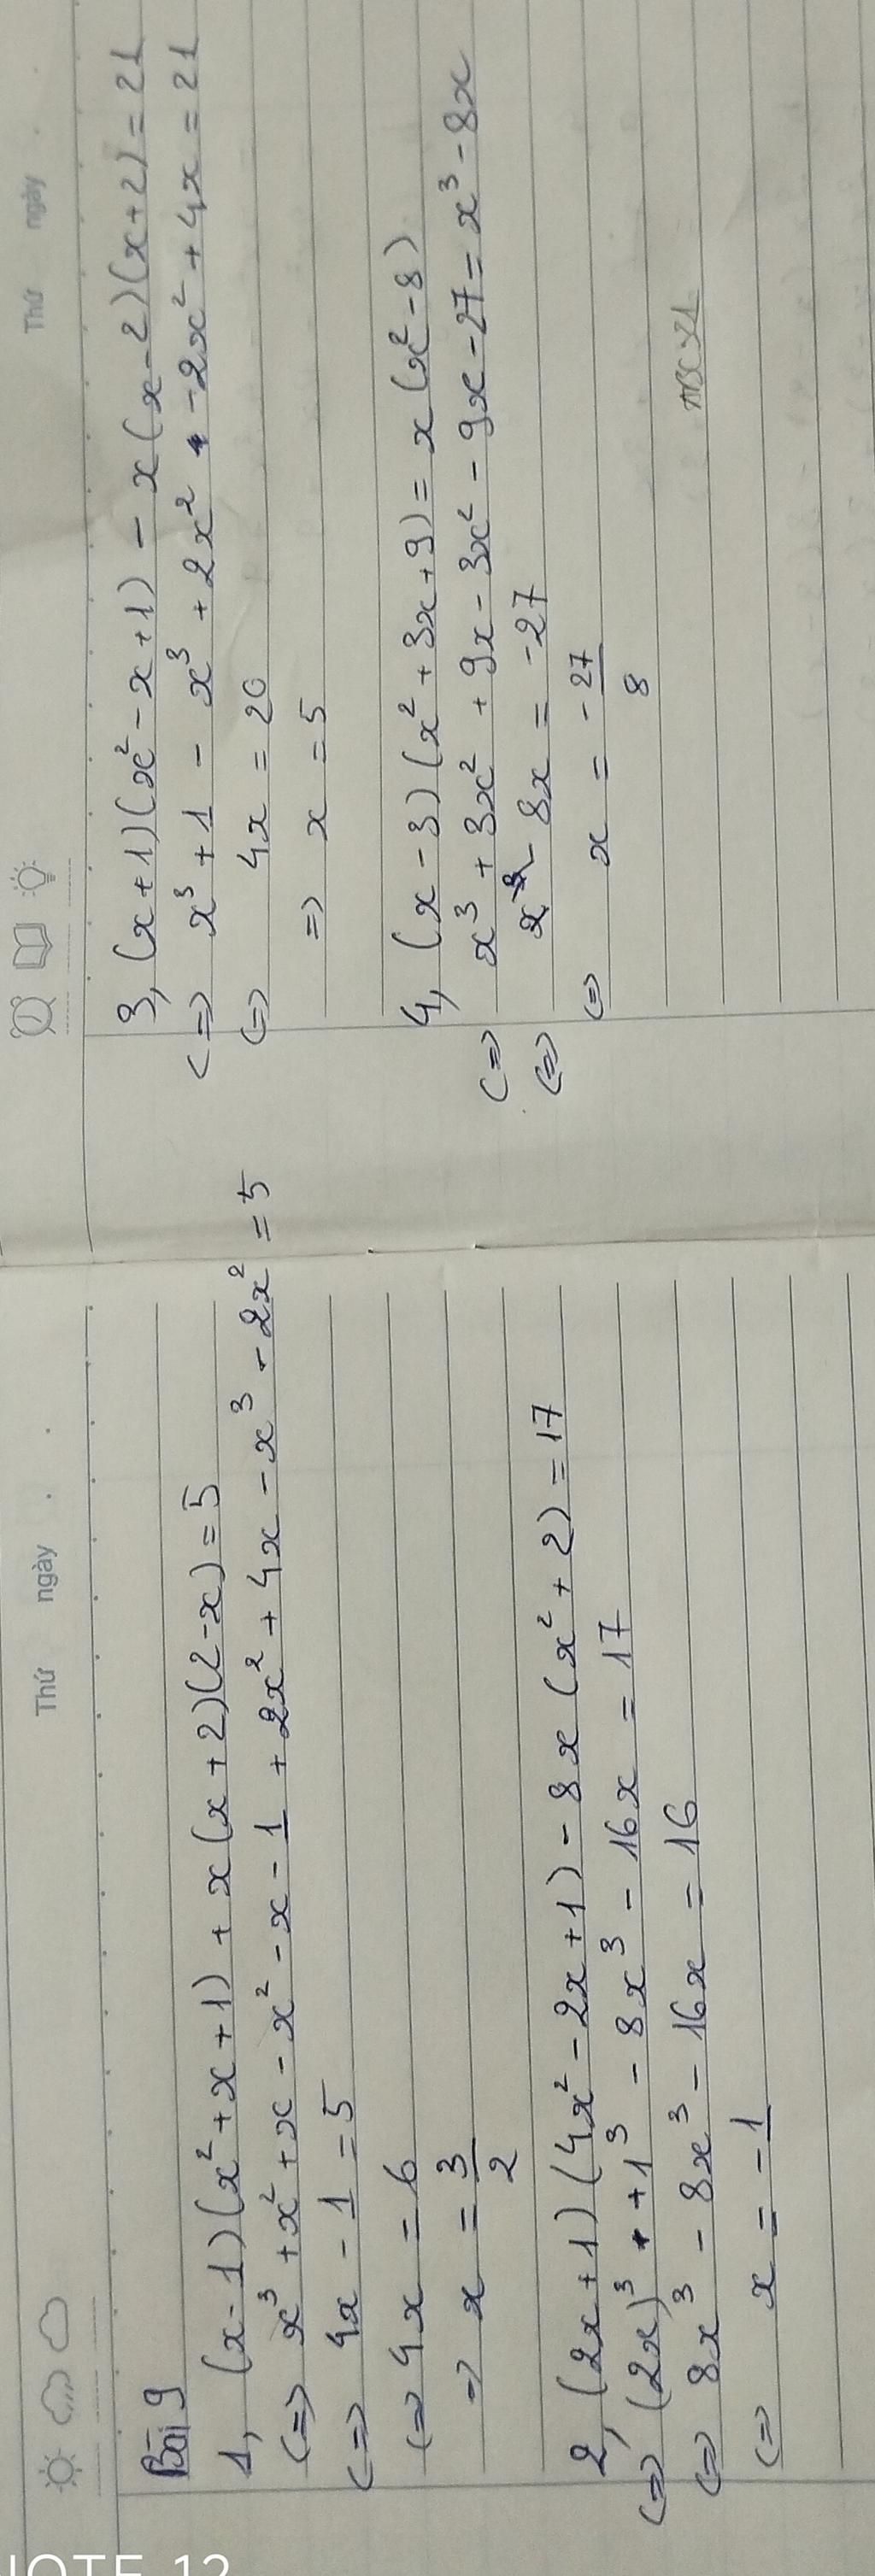 Thứ ngày
Bài 9
1, (x-1)(x²+x+1)+x(x+2)(2-x)=5
(=) x³+x²+x-x²-x-1+2x²+4x-x³-2x²=5
(=) 4x-1=5
(=) 4x=6
=) x=3/2
2, (2x+1)(4x²-2x+1)-8x(x²+2)=17
(=) (2x)³+1³-8x³-16x=17
(=) 8x³-8x³-16x=16
(=) x=-1
Thứ ngày
3, (x+1)(x²-x+1)-x(x-2)(x+2)=21
(=) x³+1-x³+2x²-2x²+4x=21
(=) 4x=20
=) x=5
4, (x-3)(x²+3x+9)=x(x²-8)
(=) x³+3x²+9x-3x²-9x-27=x³-8x
(=) -8x=-27
(=) x=-27/8
NOTE 12